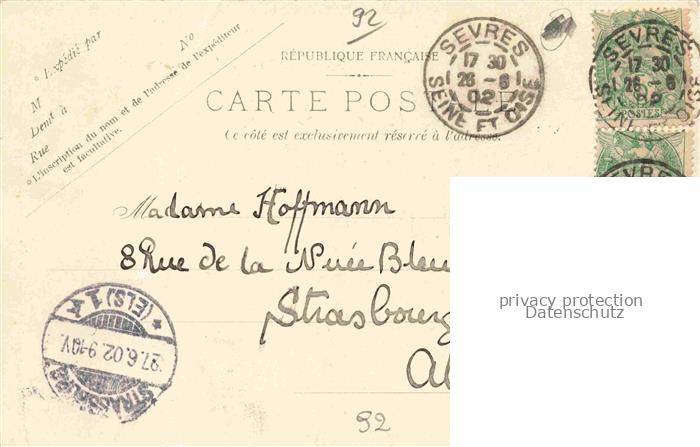 92
* Expédié par No
M
Demt à
Rue
* L'inscription du nom et de l'adresse de l'expéditeur
est facultative.
RÉPUBLIQUE FRANÇAISE
CARTE POSTALE
(Ce côté est exclusivement réservé à l'adresse.
SEVRES
17 30
26 - 6
02
SEINE ET OISE
SEVRES
17 30
26 - 6
02
POSTES
SEVRES
Madame Hoffmann
8 Rue de la Nuée Bleu
Strasbourg
Al
privacy protection
Datenschutz
STRASSBURG
27.6.02.9-10V.
* (ELS) 1 *
92